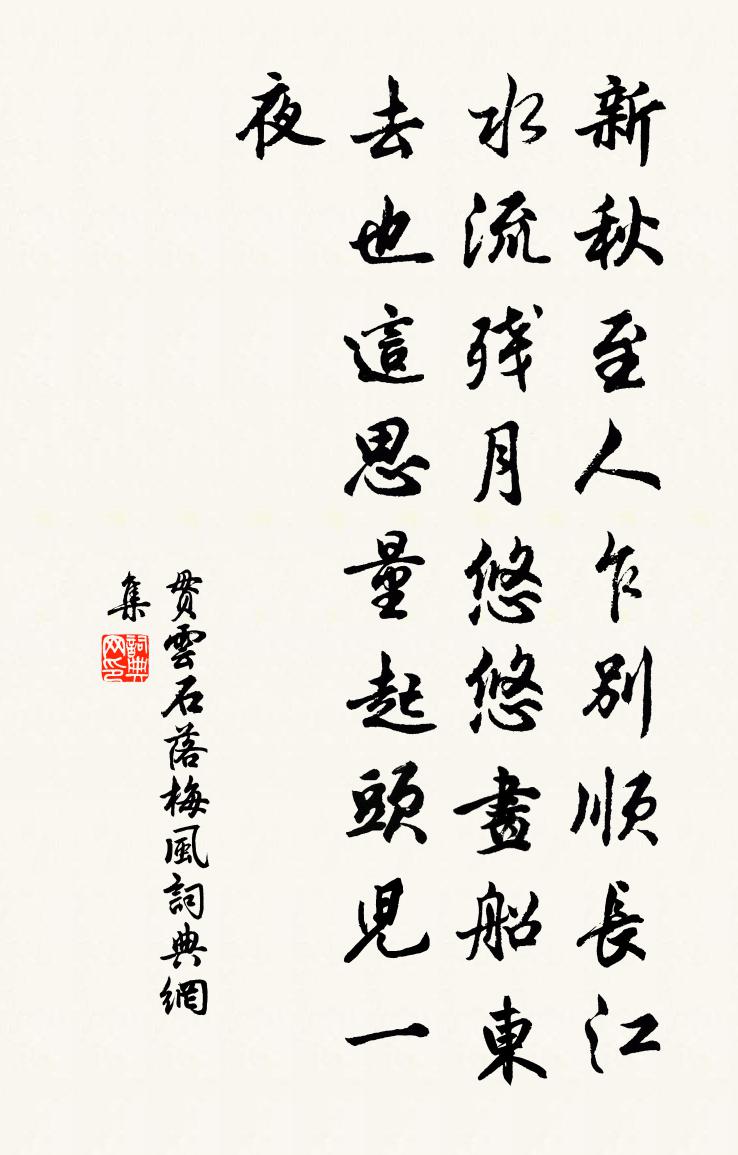 新秋至人乍別順長江
水流残月悠悠畫船東
去也這思量起頭兒一
夜
貫雲石落梅風詞典網
集
詞典
网印